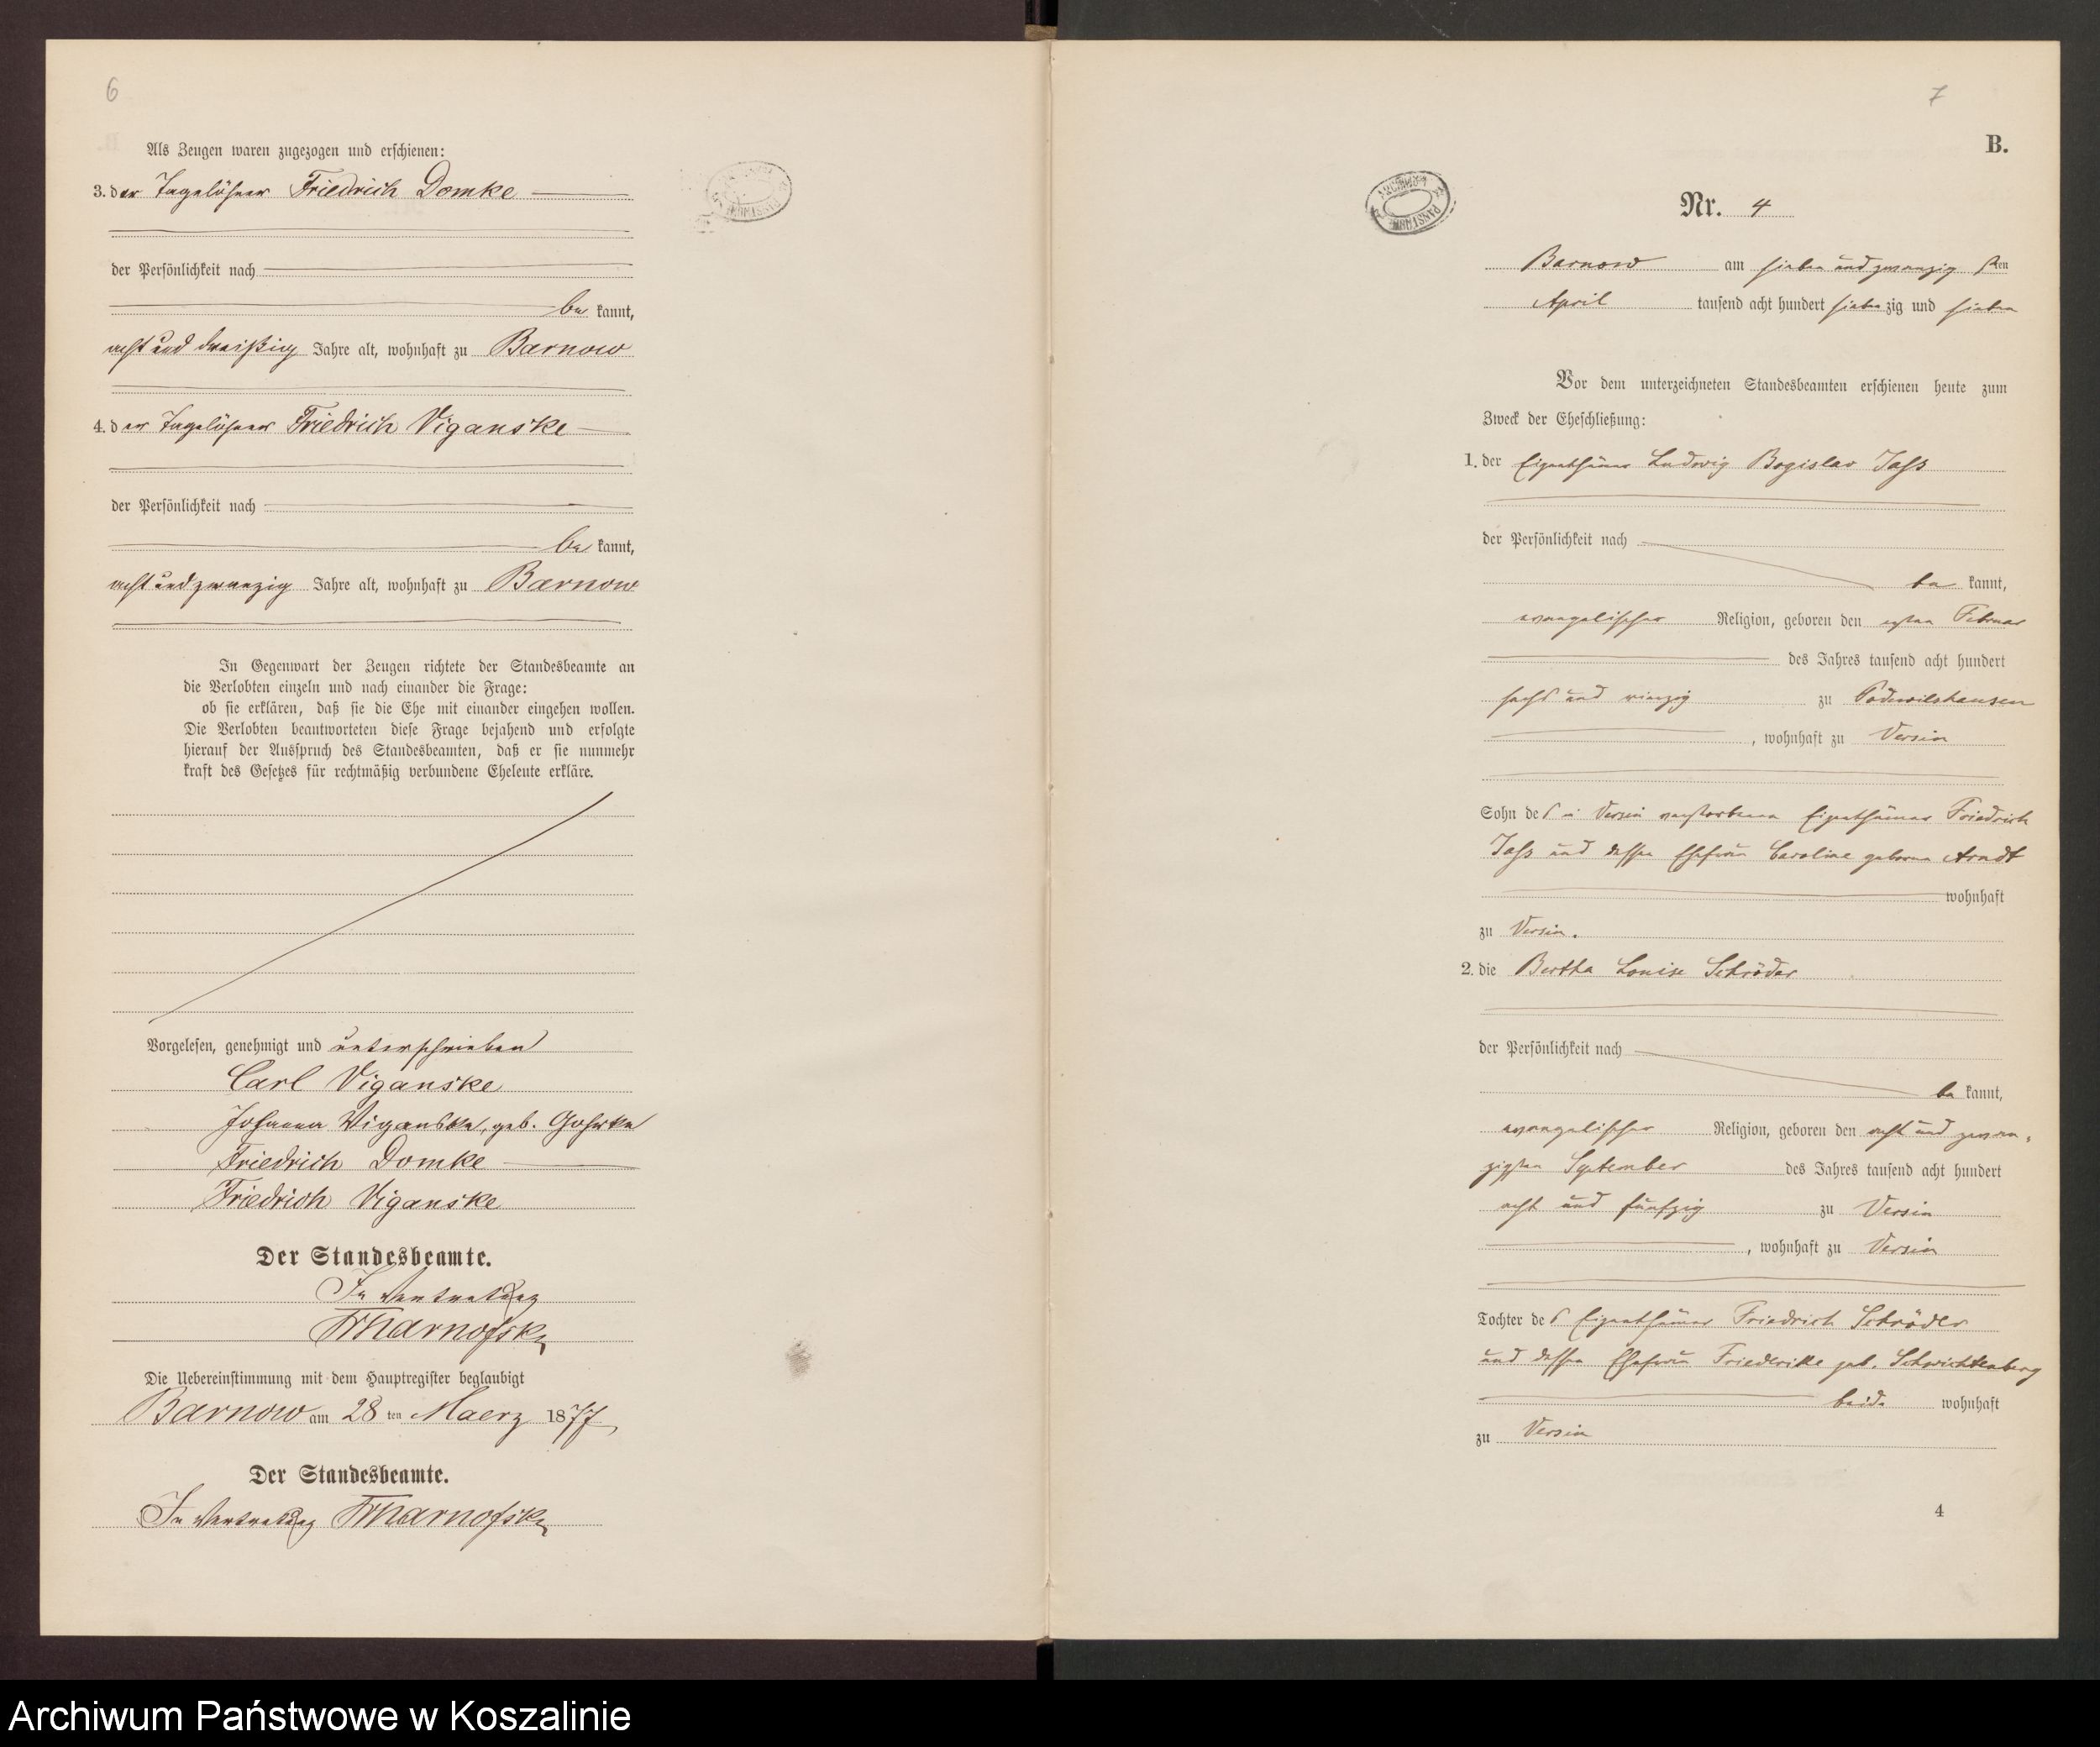 6
Als Zeugen waren zugezogen und erschienen:
3. der Tagelöhner Friedrich Domke
der Persönlichkeit nach
be kannt,
acht und dreißig Jahre alt, wohnhaft zu Barnow
4. der Tagelöhner Friedrich Viganske
der Persönlichkeit nach
be kannt,
acht und zwanzig Jahre alt, wohnhaft zu Barnow
In Gegenwart der Zeugen richtete der Standesbeamte an
die Verlobten einzeln und nach einander die Frage:
ob sie erklären, daß sie die Ehe mit einander eingehen wollen.
Die Verlobten beantworteten diese Frage bejahend und erfolgte
hierauf der Ausspruch des Standesbeamten, daß er sie nunmehr
kraft des Gesetzes für rechtmäßig verbundene Eheleute erkläre.
Vorgelesen, genehmigt und unterschrieben
Carl Viganske
Johanna Viganske, geb.
Friedrich Domke
Friedrich Viganske
Der Standesbeamte.
In Vertretung
Die Uebereinstimmung mit dem Hauptregister beglaubigt
Barnow am 28 ten Maerz 1877
Der Standesbeamte.
In Vertretung
7
B.
Nr. 4
Barnow am sieben und zwanzig sten
April tausend acht hundert sieben zig und sieben
Vor dem unterzeichneten Standesbeamten erschienen heute zum
Zweck der Eheschließung:
1. der Eigenthümer Ludwig Bogislav Jahs
der Persönlichkeit nach
be kannt,
evangelischer Religion, geboren den ersten Februar
des Jahres tausend acht hundert
sechs und vierzig zu Podewilshausen
, wohnhaft zu Versin
Sohn des in Versin verstorbenen Eigenthümer Friedrich
Jahs und dessen Ehefrau Caroline geborne Arndt
wohnhaft
zu Versin.
2. die Bertha Louise Schröder
der Persönlichkeit nach
be kannt,
evangelischer Religion, geboren den acht und zwan-
zigsten September des Jahres tausend acht hundert
acht und fünfzig zu Versin
, wohnhaft zu Versin
Tochter des Eigenthümer Friedrich Schröder
und dessen Ehefrau Friederike geb. Schwichtenberg
beide wohnhaft
zu Versin
4
Archiwum Państwowe w Koszalinie